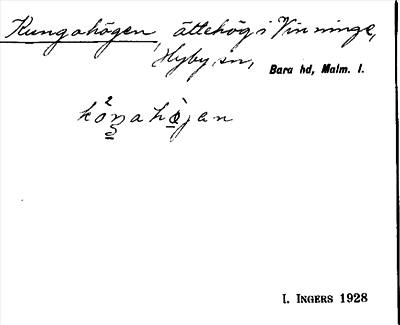 Kungahögen, ättehög i Vinninge,
Hyby sn,
Bara hd, Malm. l.
kò²ŋahò̱jan
I. INGERS 1928